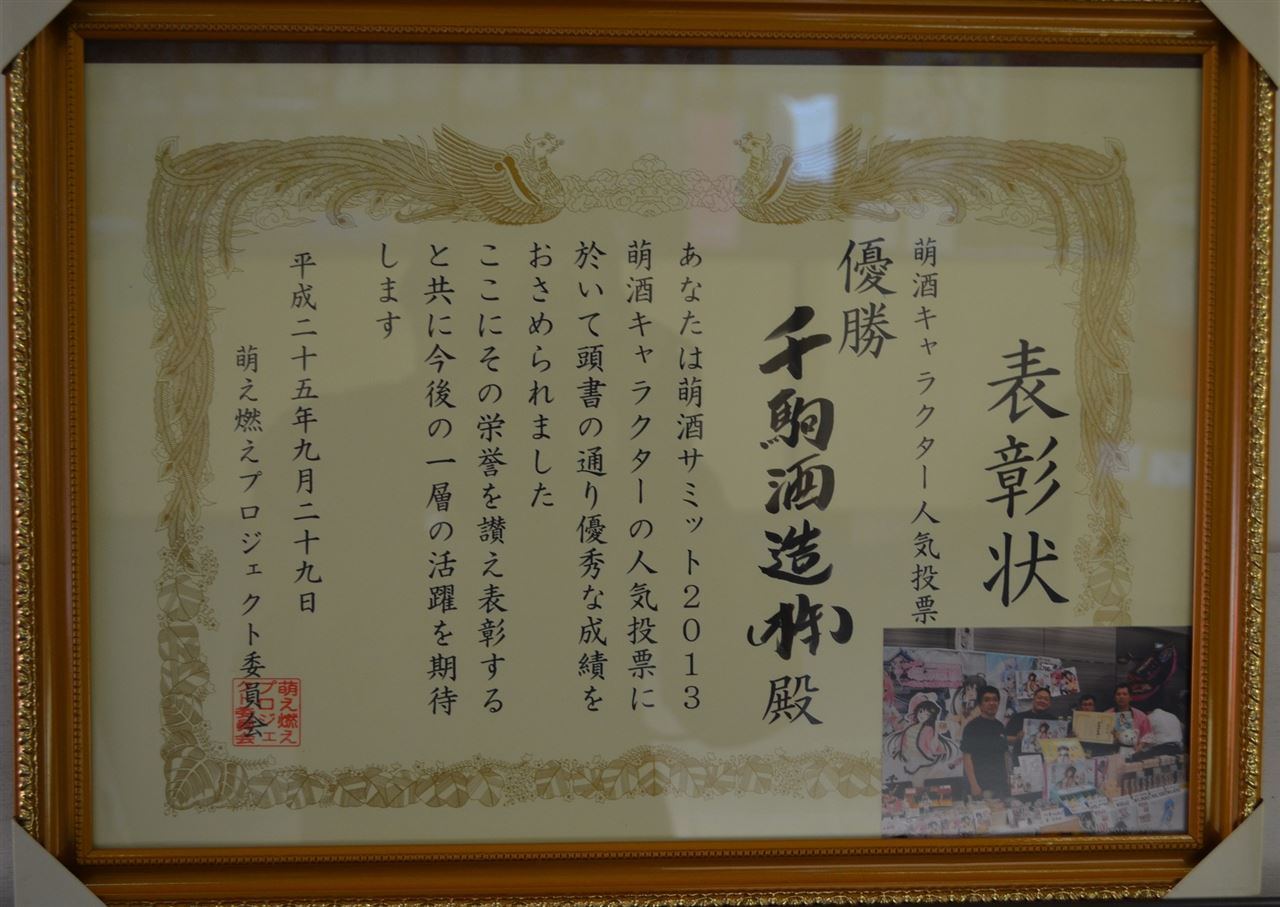 表彰状
萌酒キャラクター人気投票
優勝
千駒酒造㈱殿
あなたは萌酒サミット2013
萌酒キャラクターの人気投票に
於いて頭書の通り優秀な成績を
おさめられました
ここにその栄誉を讃え表彰する
と共に今後の一層の活躍を期待
します
平成二十五年九月二十九日
萌え燃えプロジェクト委員会
萌え燃え
プロジェ
クト委員会